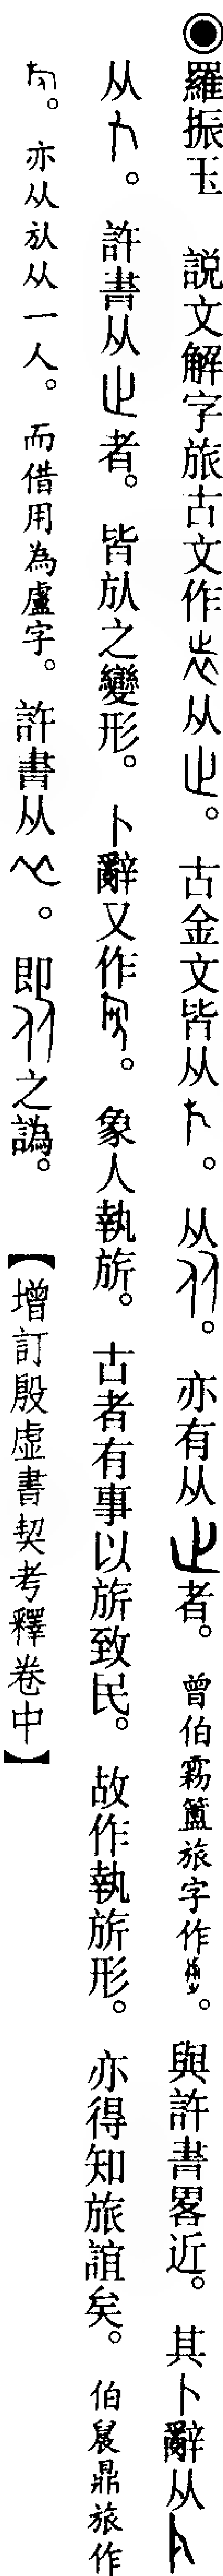 ◉羅振玉　説文解字旅古文作从。古金文皆从。从。亦有从者。曾伯霥簠旅字作。與許書畧近。其卜辭从
从。許書从者。皆㫃之變形。卜辭又作。象人執旂。古者有事以旂致民。故作執旂形。亦得知旅誼矣。伯晨鼎旅作
。亦从㫃从一人。而借用為盧字。許書从。即之譌。【增訂殷虛書契考釋卷中】